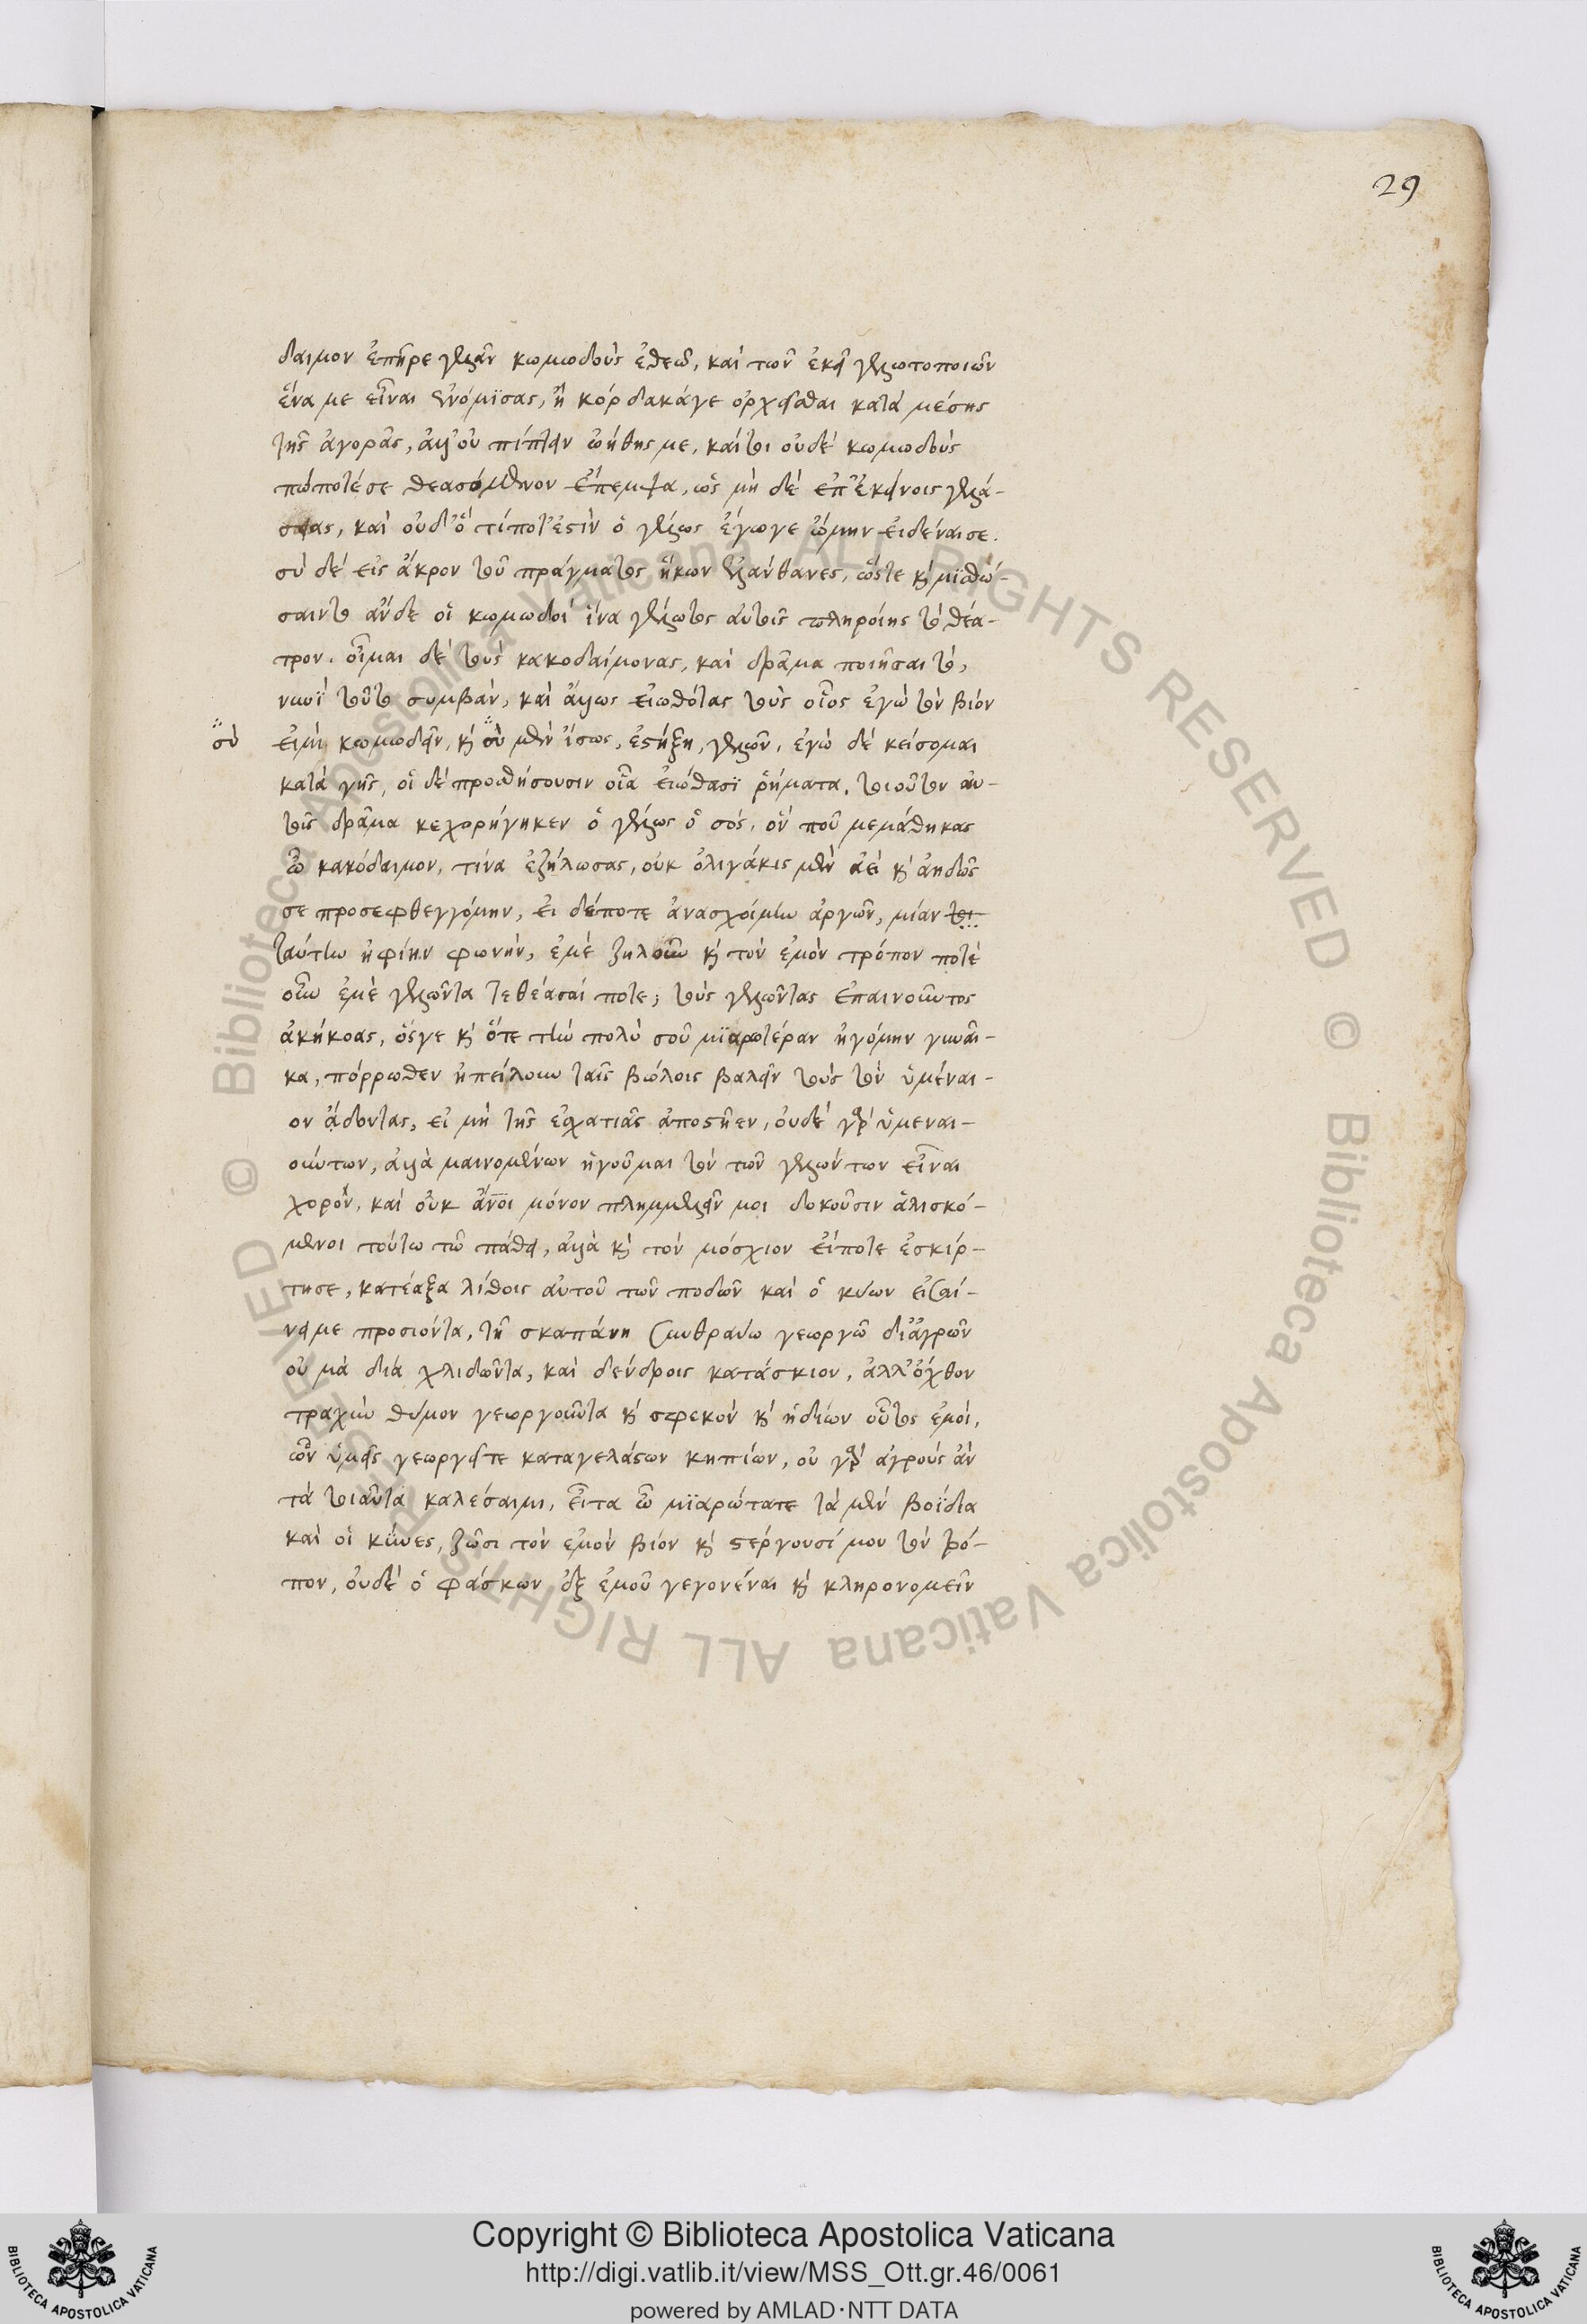 29
δαιμον ἐπῆρε γελᾶν κωμωδοὺς ἐθεῶ, καὶ τῶν ἐκεῖ γελωτοποιῶν
ἕνα με εἶναι ἐνόμϊσας, ἢ κόρδακάγε ὀρχεῖσθαι κατὰ μέσης
τῆς ἀγορᾶς, ἀλλ' οὐ πίπτειν ὠήθης με, καίτοι οὐδὲ κωμωδοὺς
πώποτέ σε θεασόμενον ἔπεμψα, ὡς μὴ δὲ ἐπ' ἐκείνοις γελά-
σειας, καὶ οὐδ' ὅ τίποτ' ἐστὶν ὁ γέλως ἔγωγε ὤμην εἰδέναι σε.
σὺ δὲ εἰς ἄκρον τοῦ πράγματος ἥκων ἐλάνθανες, ὥστε καὶ μϊσθώ-
σαιντο ἄν σε οἱ κωμωδοὶ ἵνα γέλωτος αὐτοῖς πληροίης τὸ θέα-
τρον. οἶμαι δὲ τοὺς κακοδαίμονας, καὶ δρᾶμα ποιῆσαι τὸ,
νωῒ τοῦτο συμβὰν, καὶ ἄλλως εἰωθότας τοὺς οἷος ἐγὼ τὸν βίον
σὺ
εἰμὶ κωμωδεῖν, καὶ σὺ μὲν ἴσως, ἑστήξη, γελῶν, ἐγὼ δὲ κείσομαι
κατὰ γῆς, οἱ δὲ προσθήσουσιν οἷα εἰώθασϊ ῥήματα. τοιοῦτον αὐ-
τοῖς δρᾶμα κεχορήγηκεν ὁ γέλως ὁ σός, ὃν ποῦ μεμάθηκας
ὦ κακόδαιμον, τίνα ἐζήλωσας, οὐκ ὀλιγάκις μὲν ἀεὶ καὶ ἀηδῶς
σε προσεφθεγγόμην, εἰ δέποτε ἀνασχοίμην ἀργῶν, μίαν τοι
ταύτην ἠφίην φωνὴν, ἐμὲ ζηλοῦν καὶ τὸν ἐμὸν τρόπον ποτὲ
οὖν ἐμὲ γελῶντα τεθέασαί ποτε; τοὺς γελῶντας ἐπαινοῦντος
ἀκήκοας, ὅς γε καὶ ὅτε τὴν πολὺ σοῦ μϊαρωτέραν ἠγόμην γυναῖ-
κα, πόρρωθεν ἠπείλουν ταῖς βώλοις βαλεῖν τοὺς τὸν ὑμέναι-
ον ᾄδοντας, εἰ μὴ τῆς ἐσχατιᾶς ἀποσταῖεν, οὐδὲ γὰρ ὑμεναι-
ούντων, ἀλλὰ μαινομένων ἡγοῦμαι τὸν τῶν γελώντων εἶναι
χορὸν, καὶ οὐκ ἄνοι μόνον πλημμελεῖν μοι δοκοῦσιν ἁλισκό-
μενοι τούτω τῶ πάθει, ἀλλὰ καὶ τὸν μόσχιον εἴποτε ἐσκίρ-
τησε, κατέαξα λίθοις αὐτοῦ τῶν ποδῶν καὶ ὁ κύων εἰ σαί-
νει με προσιόντα, τῆ σκαπάνη συνθραύω γεωργῶ δι' ἀγρῶν
οὐ μὰ δία χλιδῶντα, καὶ δένδροις κατάσκιον, ἀλλ' ὄχθον
τραχὺν θύμον γεωργοῦντα καὶ σφεκὸν καὶ ἡδίων οὗτος ἐμοὶ,
ὧν ὑμεῖς γεωργεῖτε καταγελάσων κηπίων, οὐ γὰρ ἀγροὺς ἂν
τὰ τοιαῦτα καλέσαιμι, εἶτα ὦ μϊαρώτατε τὰ μὲν βοΐδια
καὶ οἱ κύνες, ζῶσι τὸν ἐμὸν βίον καὶ στέργουσί μου τὸν τρό-
πον, οὐδὲ ὁ φάσκων ἐξ ἐμοῦ γεγονέναι καὶ κληρονομεῖν
© Biblioteca Apostolica Vaticana ALL RIGHTS RESERVED © Biblioteca Apostolica Vaticana ALL RIGHTS RESERVED
Copyright © Biblioteca Apostolica Vaticana
http://digi.vatlib.it/view/MSS_Ott.gr.46/0061
powered by AMLAD·NTT DATA
BIBLIOTECA APOSTOLICA VATICANA
BIBLIOTECA APOSTOLICA VATICANA